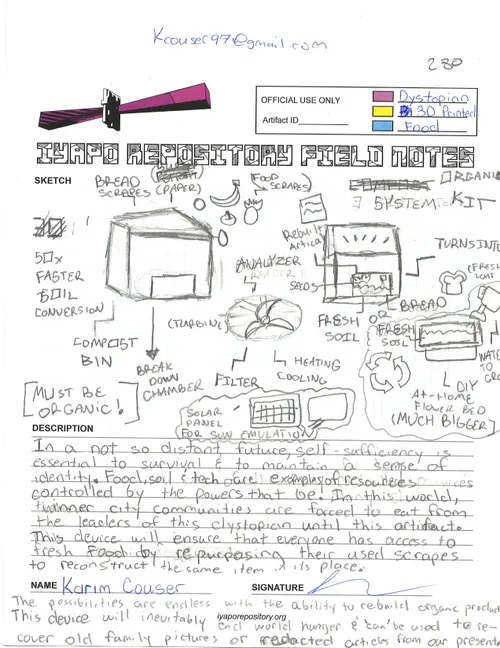 Kcouser97@gmail.com
280
OFFICIAL USE ONLY
Artifact ID
Dystopian
3D Printed
Food
IYAPO REPOSITORY FIELD NOTES
SKETCH
BREAD
SCRAPES (PAPER)
(FOOD
SCRAPES)
ORGANIC
3 SYSTEM KIT
50x
FASTER
SOIL
CONVERSION
COMPOST
BIN
BREAK
DOWN
CHAMBER
[MUST BE
ORGANIC!]
ANALYZER
(TURBINE)
FILTER
HEATING
COOLING
SOLAR
PANEL
FOR SUN EMULATION
Rebuilt
SEEDS
FRESH
SOIL
OR
BREAD
TURNS INTO
(FRESH
LOAF
FRESH
SOIL
WATER
TO
DIY
At-Home
Flower BED
(MUCH BIGGER)
DESCRIPTION
In a not so distant future, self-sufficiency is
essential to survival & to maintain a sense of
identity. Food, soil & tech are examples of resources
controlled by the powers that be. In this world,
inner city communities are forced to eat from
the leaders of this clystopian until this artifact.
This device will ensure that everyone has access to
fresh Food by repurposing their used scrapes
to reconstruct the same item in its place.
NAME Karim Couser
SIGNATURE
The possibilities are endless with the ability to rebuild organic product
This device will inevitably end world hunger & can be used to re-
iyaporepository.org
cover old family pictures or redacted articles from our present